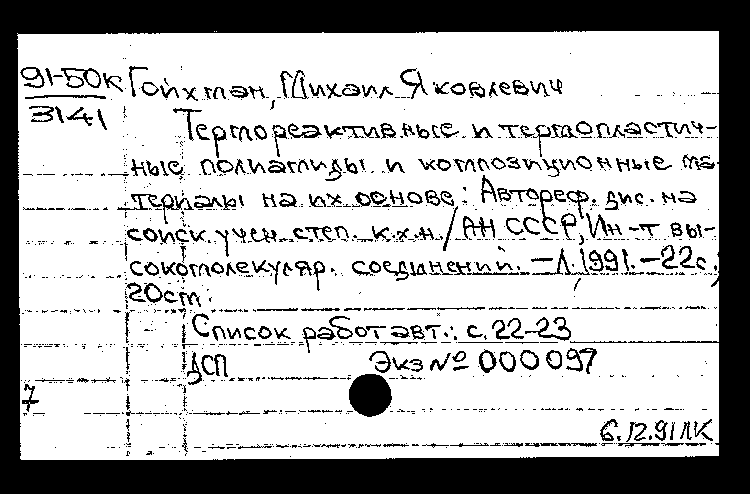 91-50к Гойхман, Михаил Яковлевич
3141
Термореактивные и термопластич-
ные полиамиды и композиционные ма-
териалы на их основе: Автореф. дис. на
соиск. учен. степ. к.х.н. / АН СССР, Ин-т вы-
сокомолекуляр. соединений. — Л., 1991. — 22 с.;
20 см.
Список работ авт.: с. 22-23
ДСП Экз № 000097
7
6.12.91 ЛК